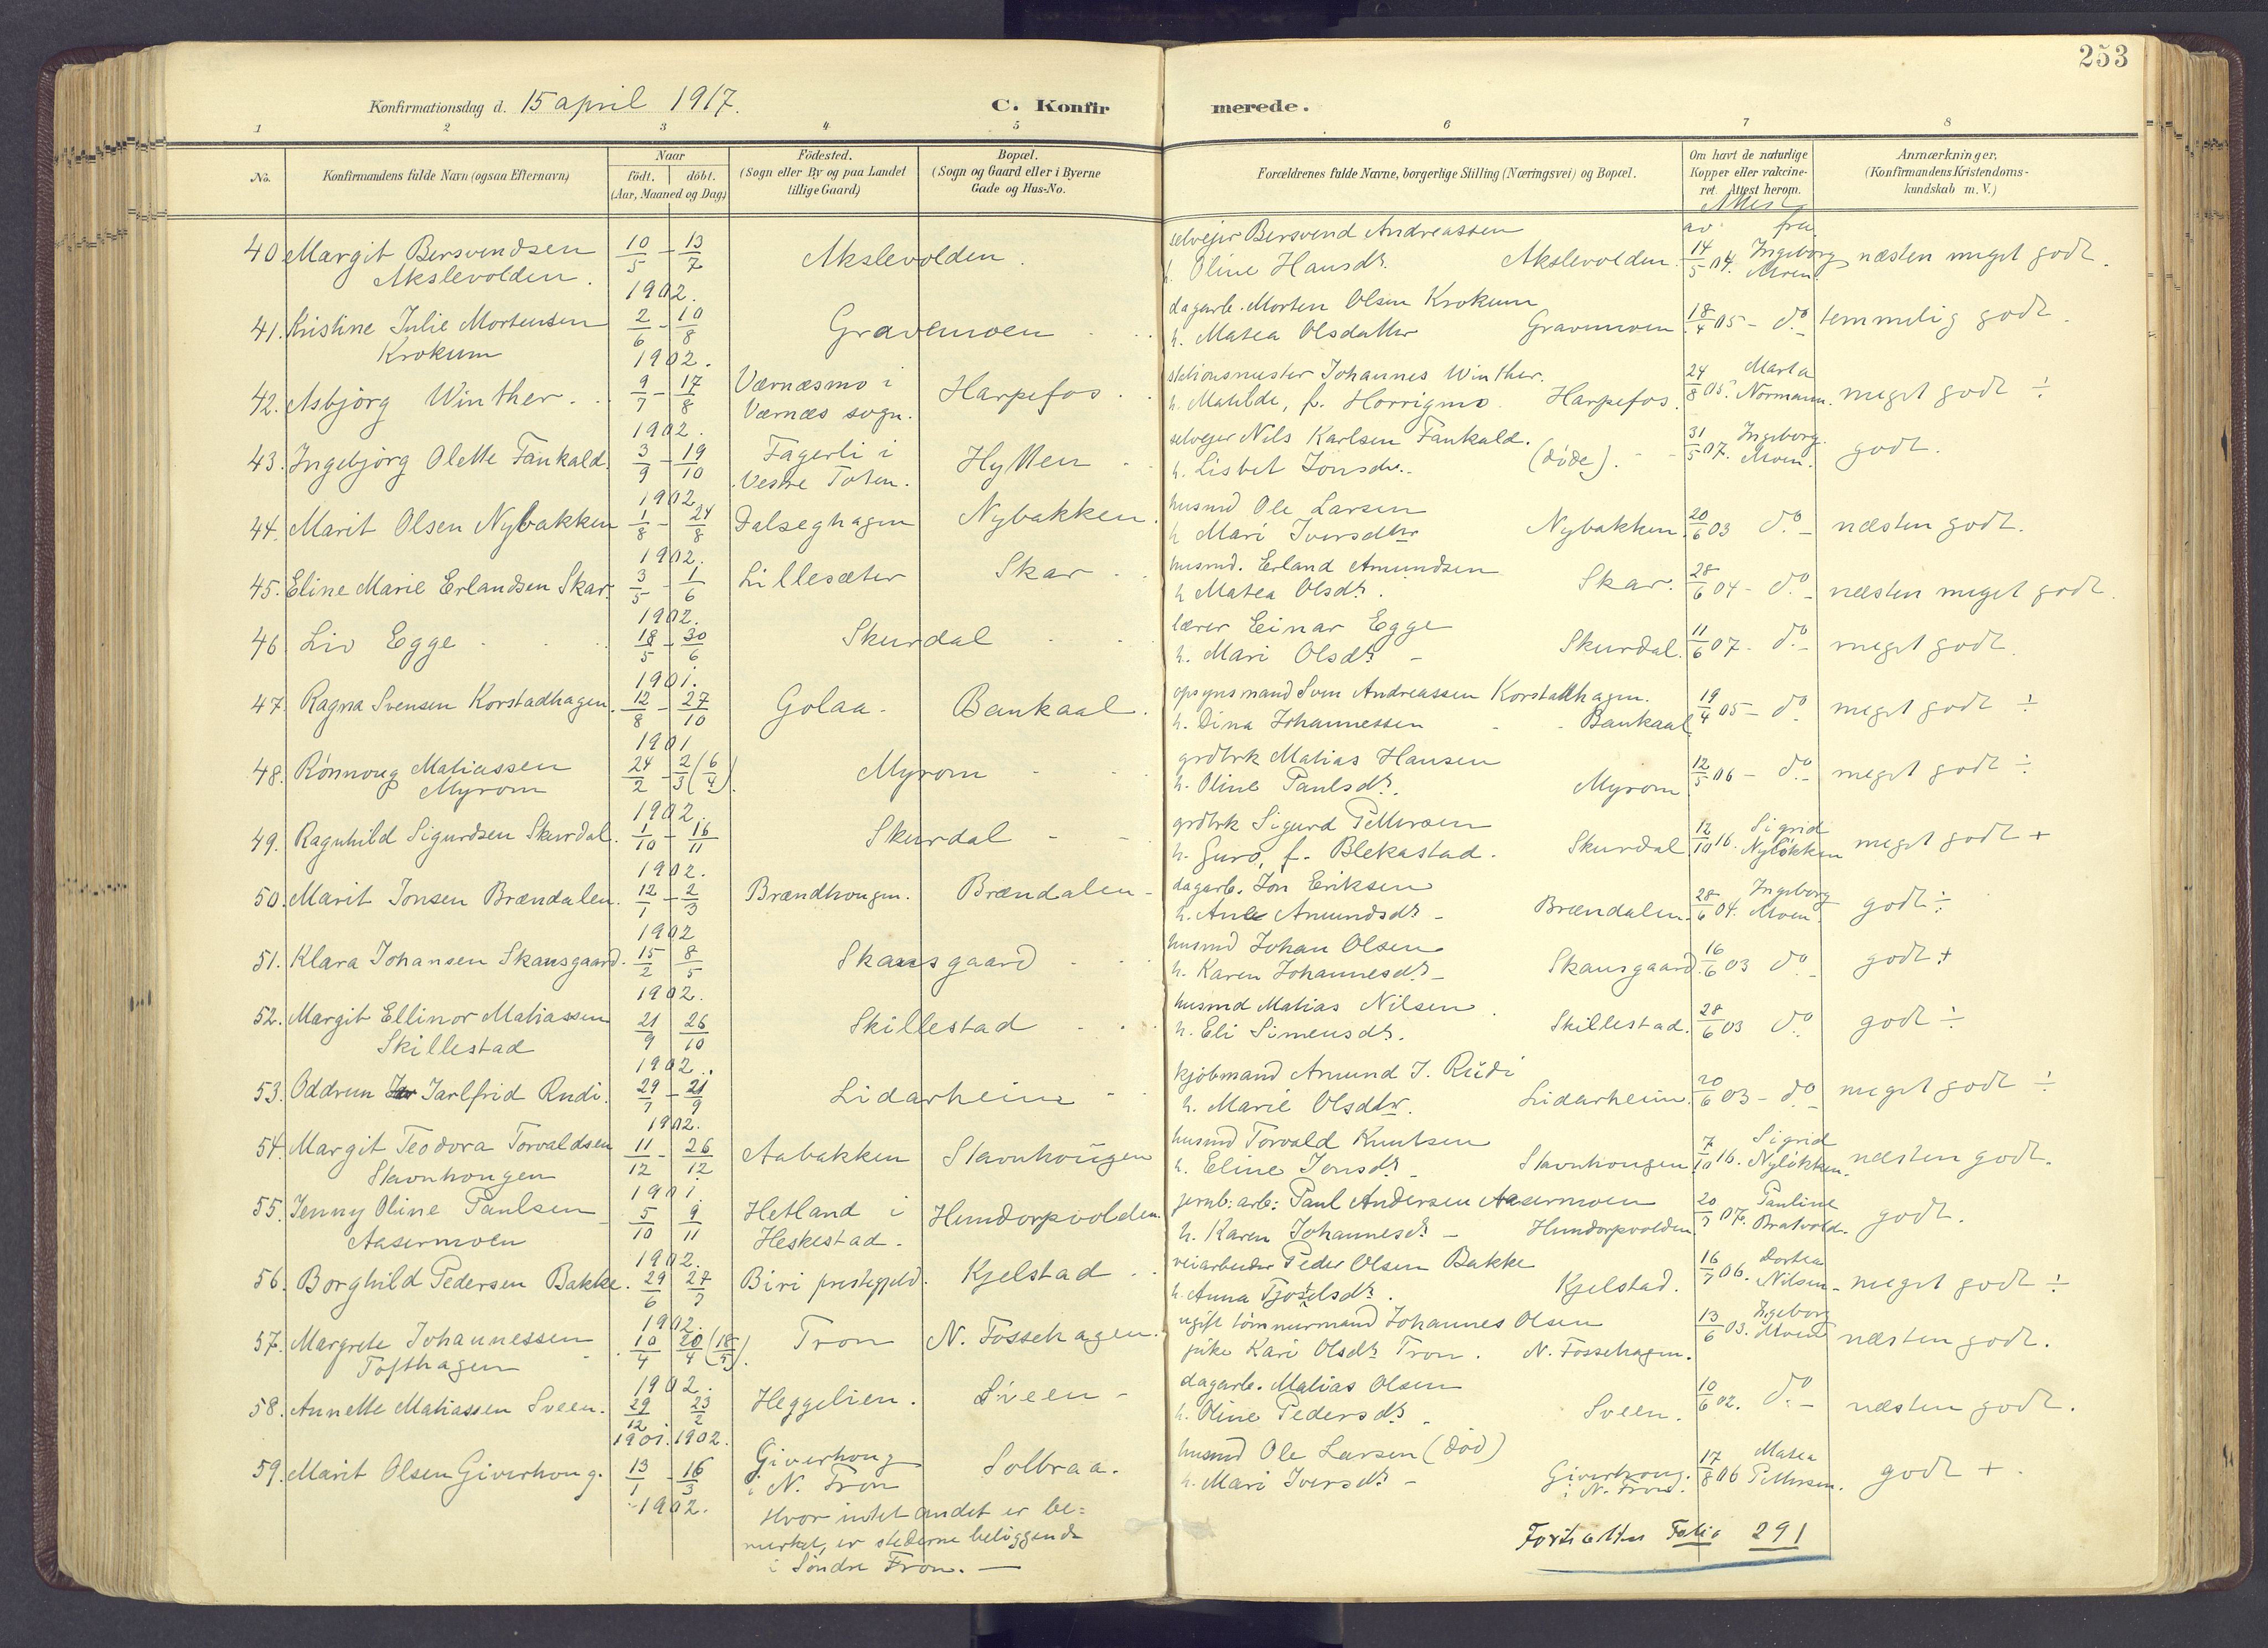 253
Konfirmationsdag d. 15 april 1917. C. Konfirmerede.
1 2 3 4 5 6 7 8
No. Konfirmandens fulde Navn (ogsaa Efternavn) Naar födt. döbt. (Aar, Maaned og Dag) Födested. (Sogn eller By og paa Landet tillige Gaard) Bopæl. (Sogn og Gaard eller i Byerne Gade og Hus-No. Forældrenes fulde Navne, borgerlige Stilling (Næringsvei) og Bopæl. Om havt de naturlige Kopper eller vakcineret. Attest herom. Anmærkninger. (Konfirmandens Kristendomskundskab m. V.)
Attest
av fra
40 Margit Bersvendsen 10/5 - 13/7 Akslevolden. selveier Bersvend Andreassen
Akslevolden. 1902. h. Oline Hansdr. Akslevolden. 14/5 04. Ingeborg Moen næsten meget godt.
41. Kristine Julie Mortensen 2/6 - 10/8 Gravemoen dagarb. Morten Olsen Krokum
Krokum 1902. h. Matea Olsdatter Gravemoen 18/4 05 - do temmelig godt.
42. Asbjörg Winther. 9/7 - 17/8 Værnæsmo i Harpefos. stationsmester Johannes Winther.
1902. Værnæs sogn. h. Matilde, f. Horrigmo. Harpefos. 24/8 05. Marta Normann. meget godt ÷
43. Ingebjörg Olette Fankald. 3/9 - 19/10 Fagerli i Hytten selveier Nils Karlsen Fankald.
1902 Vestre Toten. h. Lisbet Jonsdr. (döde). 31/5 07. Ingeborg Moen. godt.
44. Marit Olsen Nybakken 1/8 - 24/8 Dalseghagen Nybakken. husmd Ole Larsen
1902. h Mari Iversdtr Nybakken. 20/6 03 do næsten godt.
45. Eline Marie Erlandsen Skar. 3/5 - 1/6 Lillesæter Skar husmd. Erland Amundsen
1902. h Matea Olsdr. Skar. 28/6 04 - do næsten meget godt.
46 Liv Egge 18/5 - 30/6 Skurdal lærer Einar Egge
1901. h. Mari Olsdr - Skurdal. 11/6 07 - do meget godt.
47. Ragna Svensen Korstadhagen. 12/8 - 27/10 Golaa. Baukaal. opsynsmand Sven Andreassen Korstadhagen.
1901 h. Dina Johannessen Baukaal 19/4 05 - do meget godt ÷
48. Rönnoug Matiassen 24/2 - 2/3 (6/4). Myrom grdbrk Matias Hansen
Myrom 1902. h. Oline Paulsdr. Myrom 12/5 06 - do meget godt ÷
49. Ragnhild Sigurdsen Skurdal. 1/10 - 16/11 Skurdal grdbrk Sigurd Pettersen
1902. h. Guro, f. Blekastad. Skurdal. 12/10 16. Sigrid Nylökken meget godt +
50. Marit Jonsen Brændalen. 12/1 - 2/3 Brændhougen. Brændalen - dagarb. Jon Eriksen
1902 h. Ane Amundsdr - Brændalen. 28/6 04. Ingeborg Moen godt ÷
51. Klara Johansen Skansgaard. 15/2 8/5 Skansgaard husmd Johan Olsen
1902. h. Karen Johannesdr - Skansgaard 16/6 03 do godt +
52. Margit Ellinor Matiassen 21/9 26/10 Skillestad husmd Matias Nilsen
Skillestad 1902. h. Eli Simensdr. Skillestad. 28/6 03 do godt ÷
53. Oddrun Jarlfrid Rudi. 29/7 - 21/9 Lidarheim kjöbmand Amund J. Rudi
1902. h. Marie Olsdtr. Lidarheim. 20/6 03 - do meget godt ÷
54. Margit Teodora Torvaldsen 11/12 - 26/12 Aabakken Stavnhougen husmd Torvald Knutsen
Stavnhougen 1901. h. Eline Jonsdr - Stavnhougen. 7/10 16. Sigrid Nylökken. næsten godt.
55. Jenny Oline Paulsen 5/10 9/11 Hetland i Hundorpvolden. jernb: arb: Paul Andersen Aasermoen
Aasermoen 1902. Heskestad. h. Karen Johannesdr - Hundorpvolden. 20/9 07. Pauline Bratvold. godt.
56. Borghild Pedersen Bakke. 29/6 27/7 Biri prestegjeld. Kjelstad veiarbeider Peder Olsen Bakke
1902. h. Anna Tjostelsdr. Kjelstad. 16/7 06. Dortea Nilsen - meget godt ÷
57. Margrete Johannessen 10/4 20/4 (18/5). Tron N. Fossehagen. ugift tömmermand Johannes Olsen
Tofthagen 1902. pike Kari Olsdr Tron. N. Fossehagen. 13/6 03. Ingeborg Moen næsten godt.
58. Annette Matiassen Sveen. 29/12 23/2 Heggelien. Sveen - dagarb. Matias Olsen
1901. 1902. h. Oline Pedersdr. Sveen. 10/6 02. do næsten godt.
59. Marit Olsen Giverhoug. 13/1 - 16/3 Giverhoug Solbraa. husmd Ole Larsen (död)
1902. i N. Fron h. Mari Iversdr - Giverhoug. i N. Fron. 17/8 06 Matea Pettersen. godt +.
Hvor intet andet er be=
merket, er stederne beliggende
i Söndre Fron. -
Fortsættes Folio 291